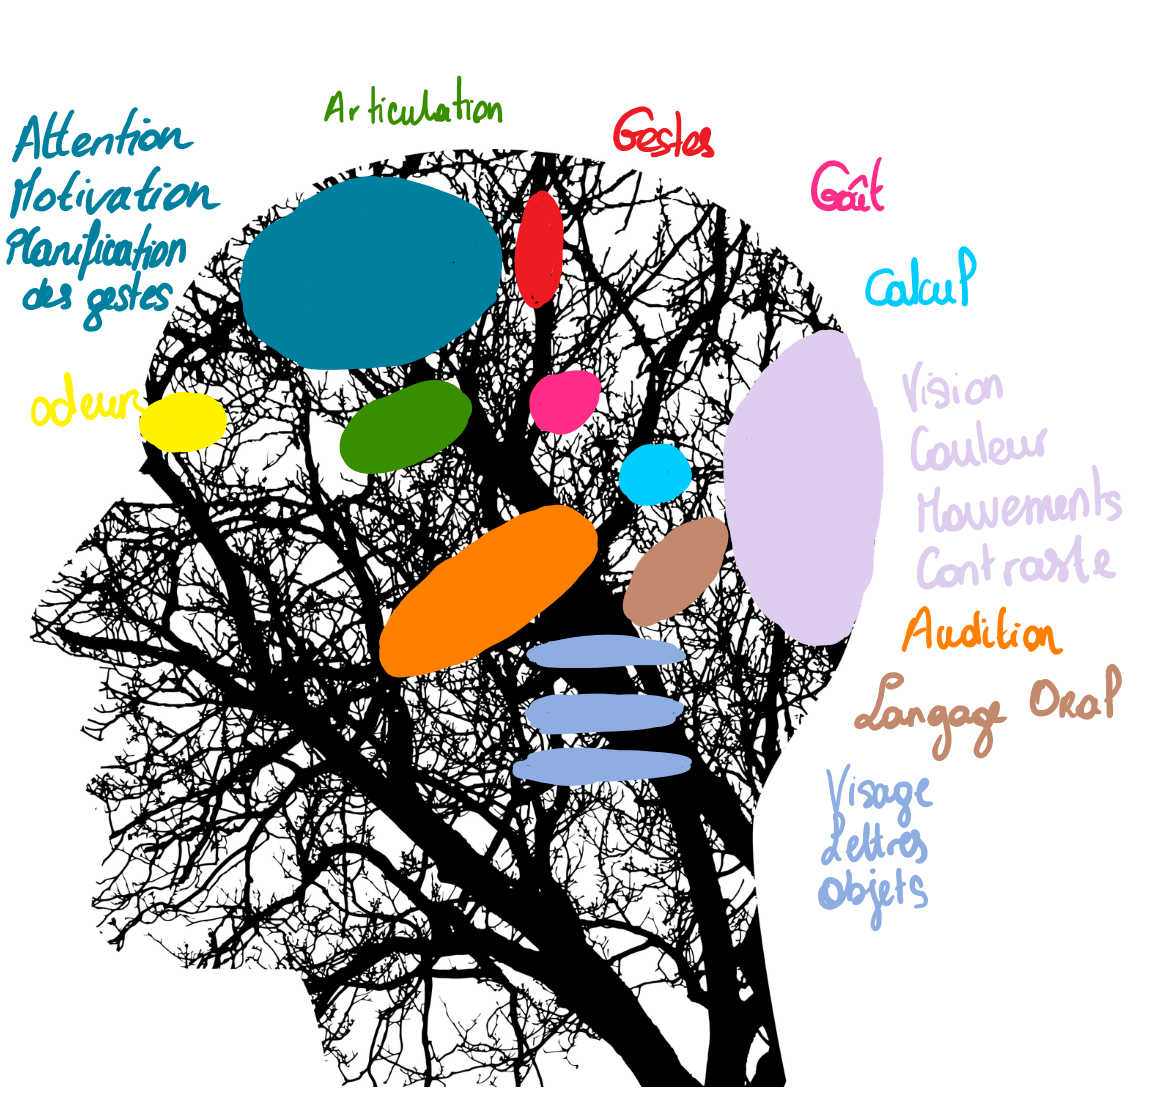 Articulation
Attention
Motivation
Planification
des gestes
odeurs
Gestes
Goût
Calcul
Vision
Couleur
Mouvements
Contraste
Audition
Langage Oral
Visage
Lettres
Objets